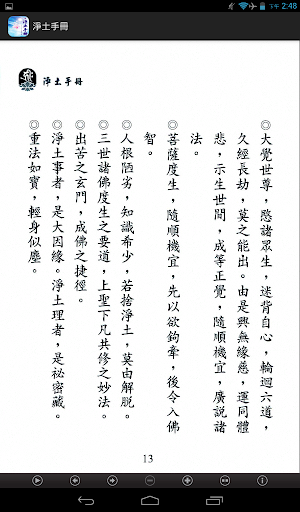 下午 2:48
淨土手冊
淨土手冊
◎大覺世尊，愍諸眾生，迷背自心，輪迴六道，
久經長劫，莫之能出。由是興無緣慈，運同體
悲，示生世間，成等正覺，隨順機宜，廣說諸
法。
◎菩薩度生，隨順機宜，先以欲鉤牽，後令入佛
智。
◎人根陋劣，知識希少，若捨淨土，莫由解脫。
◎三世諸佛度生之要道，上聖下凡共修之妙法。
◎出苦之玄門，成佛之捷徑。
◎淨土事者，是大因緣。淨土理者，是祕密藏。
◎重法如寶，輕身似塵。
13